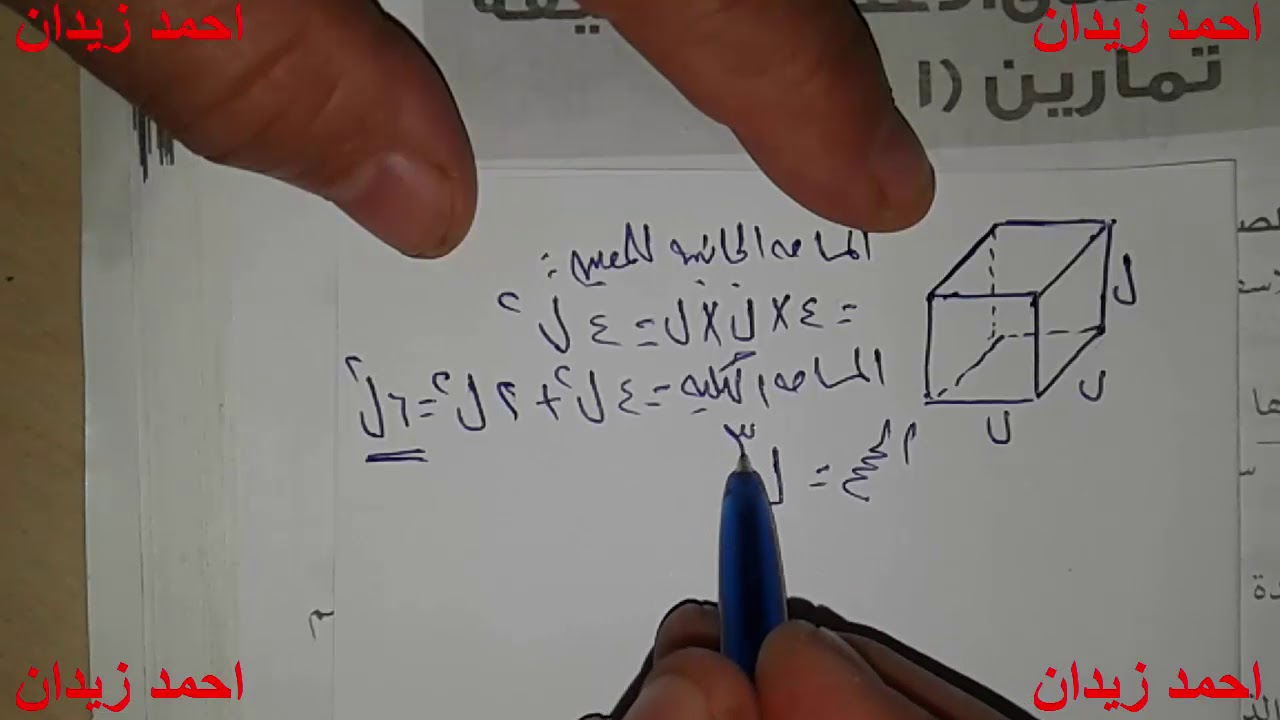 احمد زيدان
احمد زيدان
تمارين (١
المساحه الجانبيه للمكعب :
= ٤ × ل × ل = ٤ ل ٢
المساحه الكليه = ٤ ل ٢ + ٢ ل ٢ = ٦ ل ٢
ل
ل
ل
ل ٣
احمد زيدان
احمد زيدان